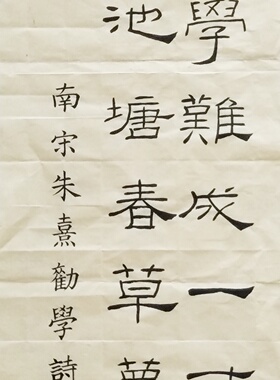 學難成一寸
池塘春草夢
南宋朱熹勸學詩